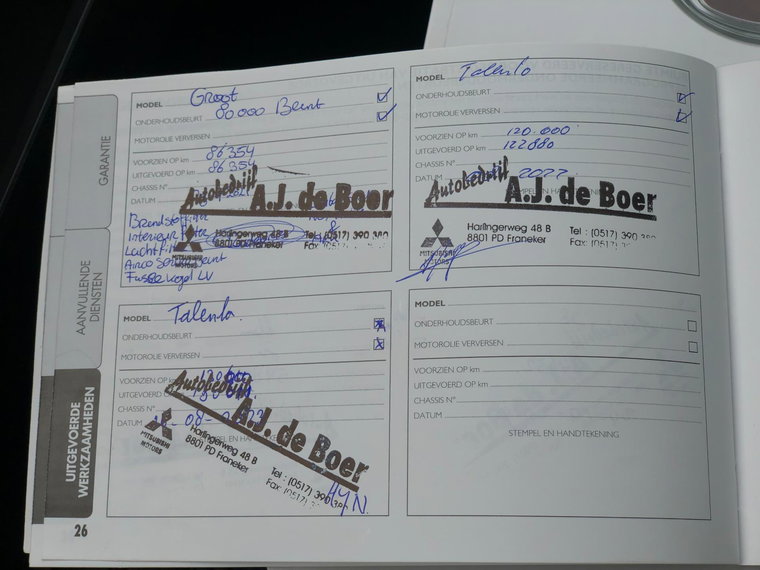 GARANTIE
AANVULLENDE
DIENSTEN
UITGEVOERDE
WERKZAAMHEDEN
26
MODEL Groot
80.000 Beurt
ONDERHOUDSBEURT
MOTOROLIE VERVERSEN
VOORZIEN OP km 86354
UITGEVOERD OP km 86354
CHASSIS N°
DATUM
Autobedrijf
A.J. de Boer
Harlingerweg 48 B
8801 PD Franeker
Tel : (0517) 390 380
Fax: (0517)
MITSUBISHI
MOTORS
Brandstoffilter
Interieur filter
Airco
LV
MODEL Talento
ONDERHOUDSBEURT
MOTOROLIE VERVERSEN
VOORZIEN OP km 120.000
UITGEVOERD OP km 122880
CHASSIS N°
DATUM 2022
STEMPEL EN HANDTEKENING
Autobedrijf
A.J. de Boer
Harlingerweg 48 B
8801 PD Franeker
Tel : (0517) 390
Fax: (0517)
MITSUBISHI
MOTORS
MODEL Talento
ONDERHOUDSBEURT
MOTOROLIE VERVERSEN
VOORZIEN OP km
UITGEVOERD OP km
CHASSIS N°
DATUM
STEMPEL EN
Autobedrijf
A.J. de Boer
Harlingerweg 48 B
8801 PD Franeker
Tel : (0517) 390 380
Fax: (0517)
MITSUBISHI
MOTORS
MODEL
ONDERHOUDSBEURT
MOTOROLIE VERVERSEN
VOORZIEN OP km
UITGEVOERD OP km
CHASSIS N°
DATUM
STEMPEL EN HANDTEKENING